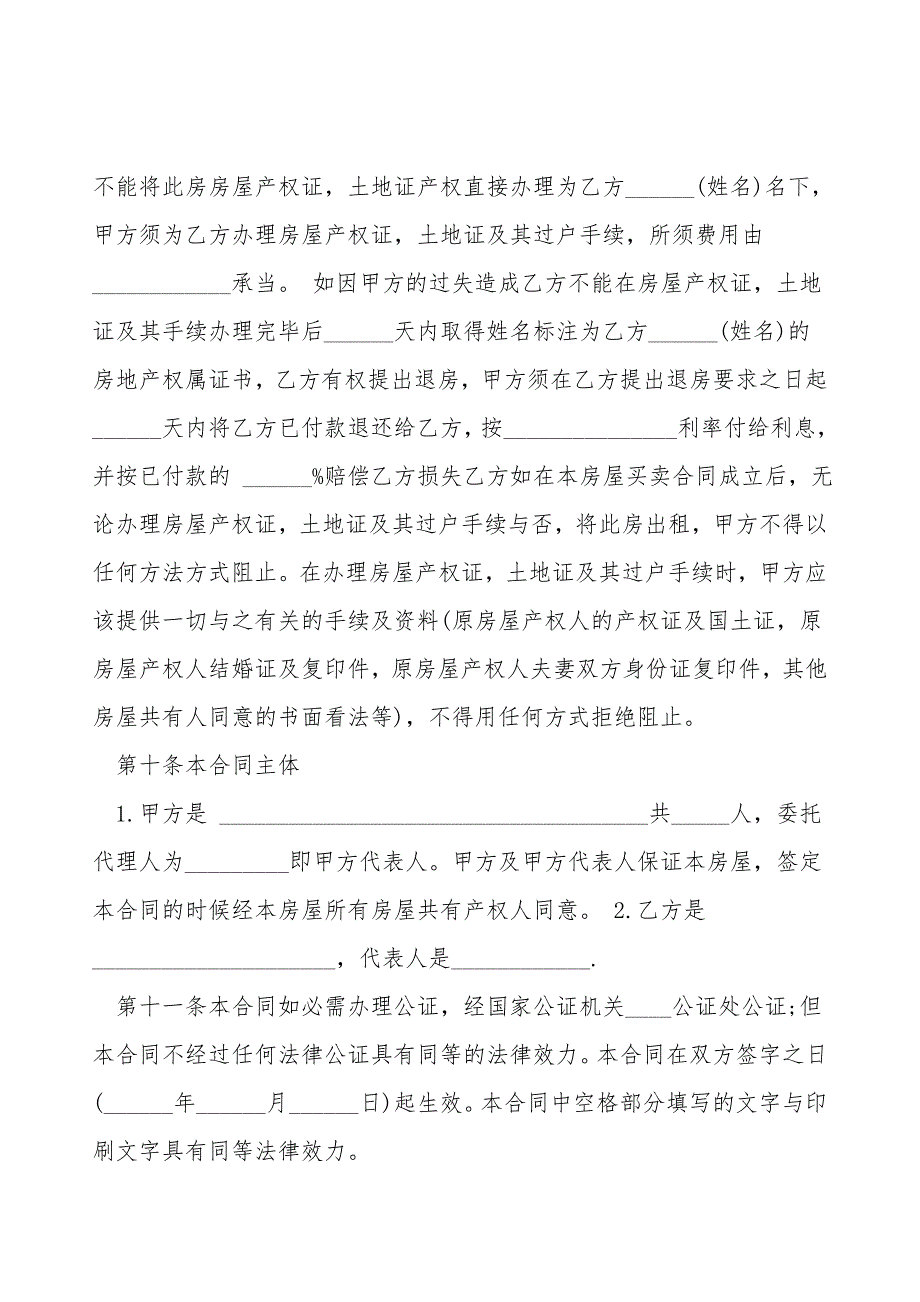 不能将此房房屋产权证，土地证产权直接办理为乙方______(姓名)名下，
甲方须为乙方办理房屋产权证，土地证及其过户手续，所须费用由
____________承当。 如因甲方的过失造成乙方不能在房屋产权证，土地
证及其手续办理完毕后______天内取得姓名标注为乙方______(姓名)的
房地产权属证书，乙方有权提出退房，甲方须在乙方提出退房要求之日起
______天内将乙方已付款退还给乙方，按_______________利率付给利息，
并按已付款的 ______%赔偿乙方损失乙方如在本房屋买卖合同成立后，无
论办理房屋产权证，土地证及其过户手续与否，将此房出租，甲方不得以
任何方法方式阻止。在办理房屋产权证，土地证及其过户手续时，甲方应
该提供一切与之有关的手续及资料(原房屋产权人的产权证及国土证，原
房屋产权人结婚证及复印件，原房屋产权人夫妻双方身份证复印件，其他
房屋共有人同意的书面看法等)，不得用任何方式拒绝阻止。
第十条本合同主体
1.甲方是 _____________________________________共_____人，委托
代理人为_________即甲方代表人。甲方及甲方代表人保证本房屋，签定
本合同的时候经本房屋所有房屋共有产权人同意。 2.乙方是
_____________________，代表人是____________.
第十一条本合同如必需办理公证，经国家公证机关____公证处公证;但
本合同不经过任何法律公证具有同等的法律效力。本合同在双方签字之日
(______年______月______日)起生效。本合同中空格部分填写的文字与印
刷文字具有同等法律效力。